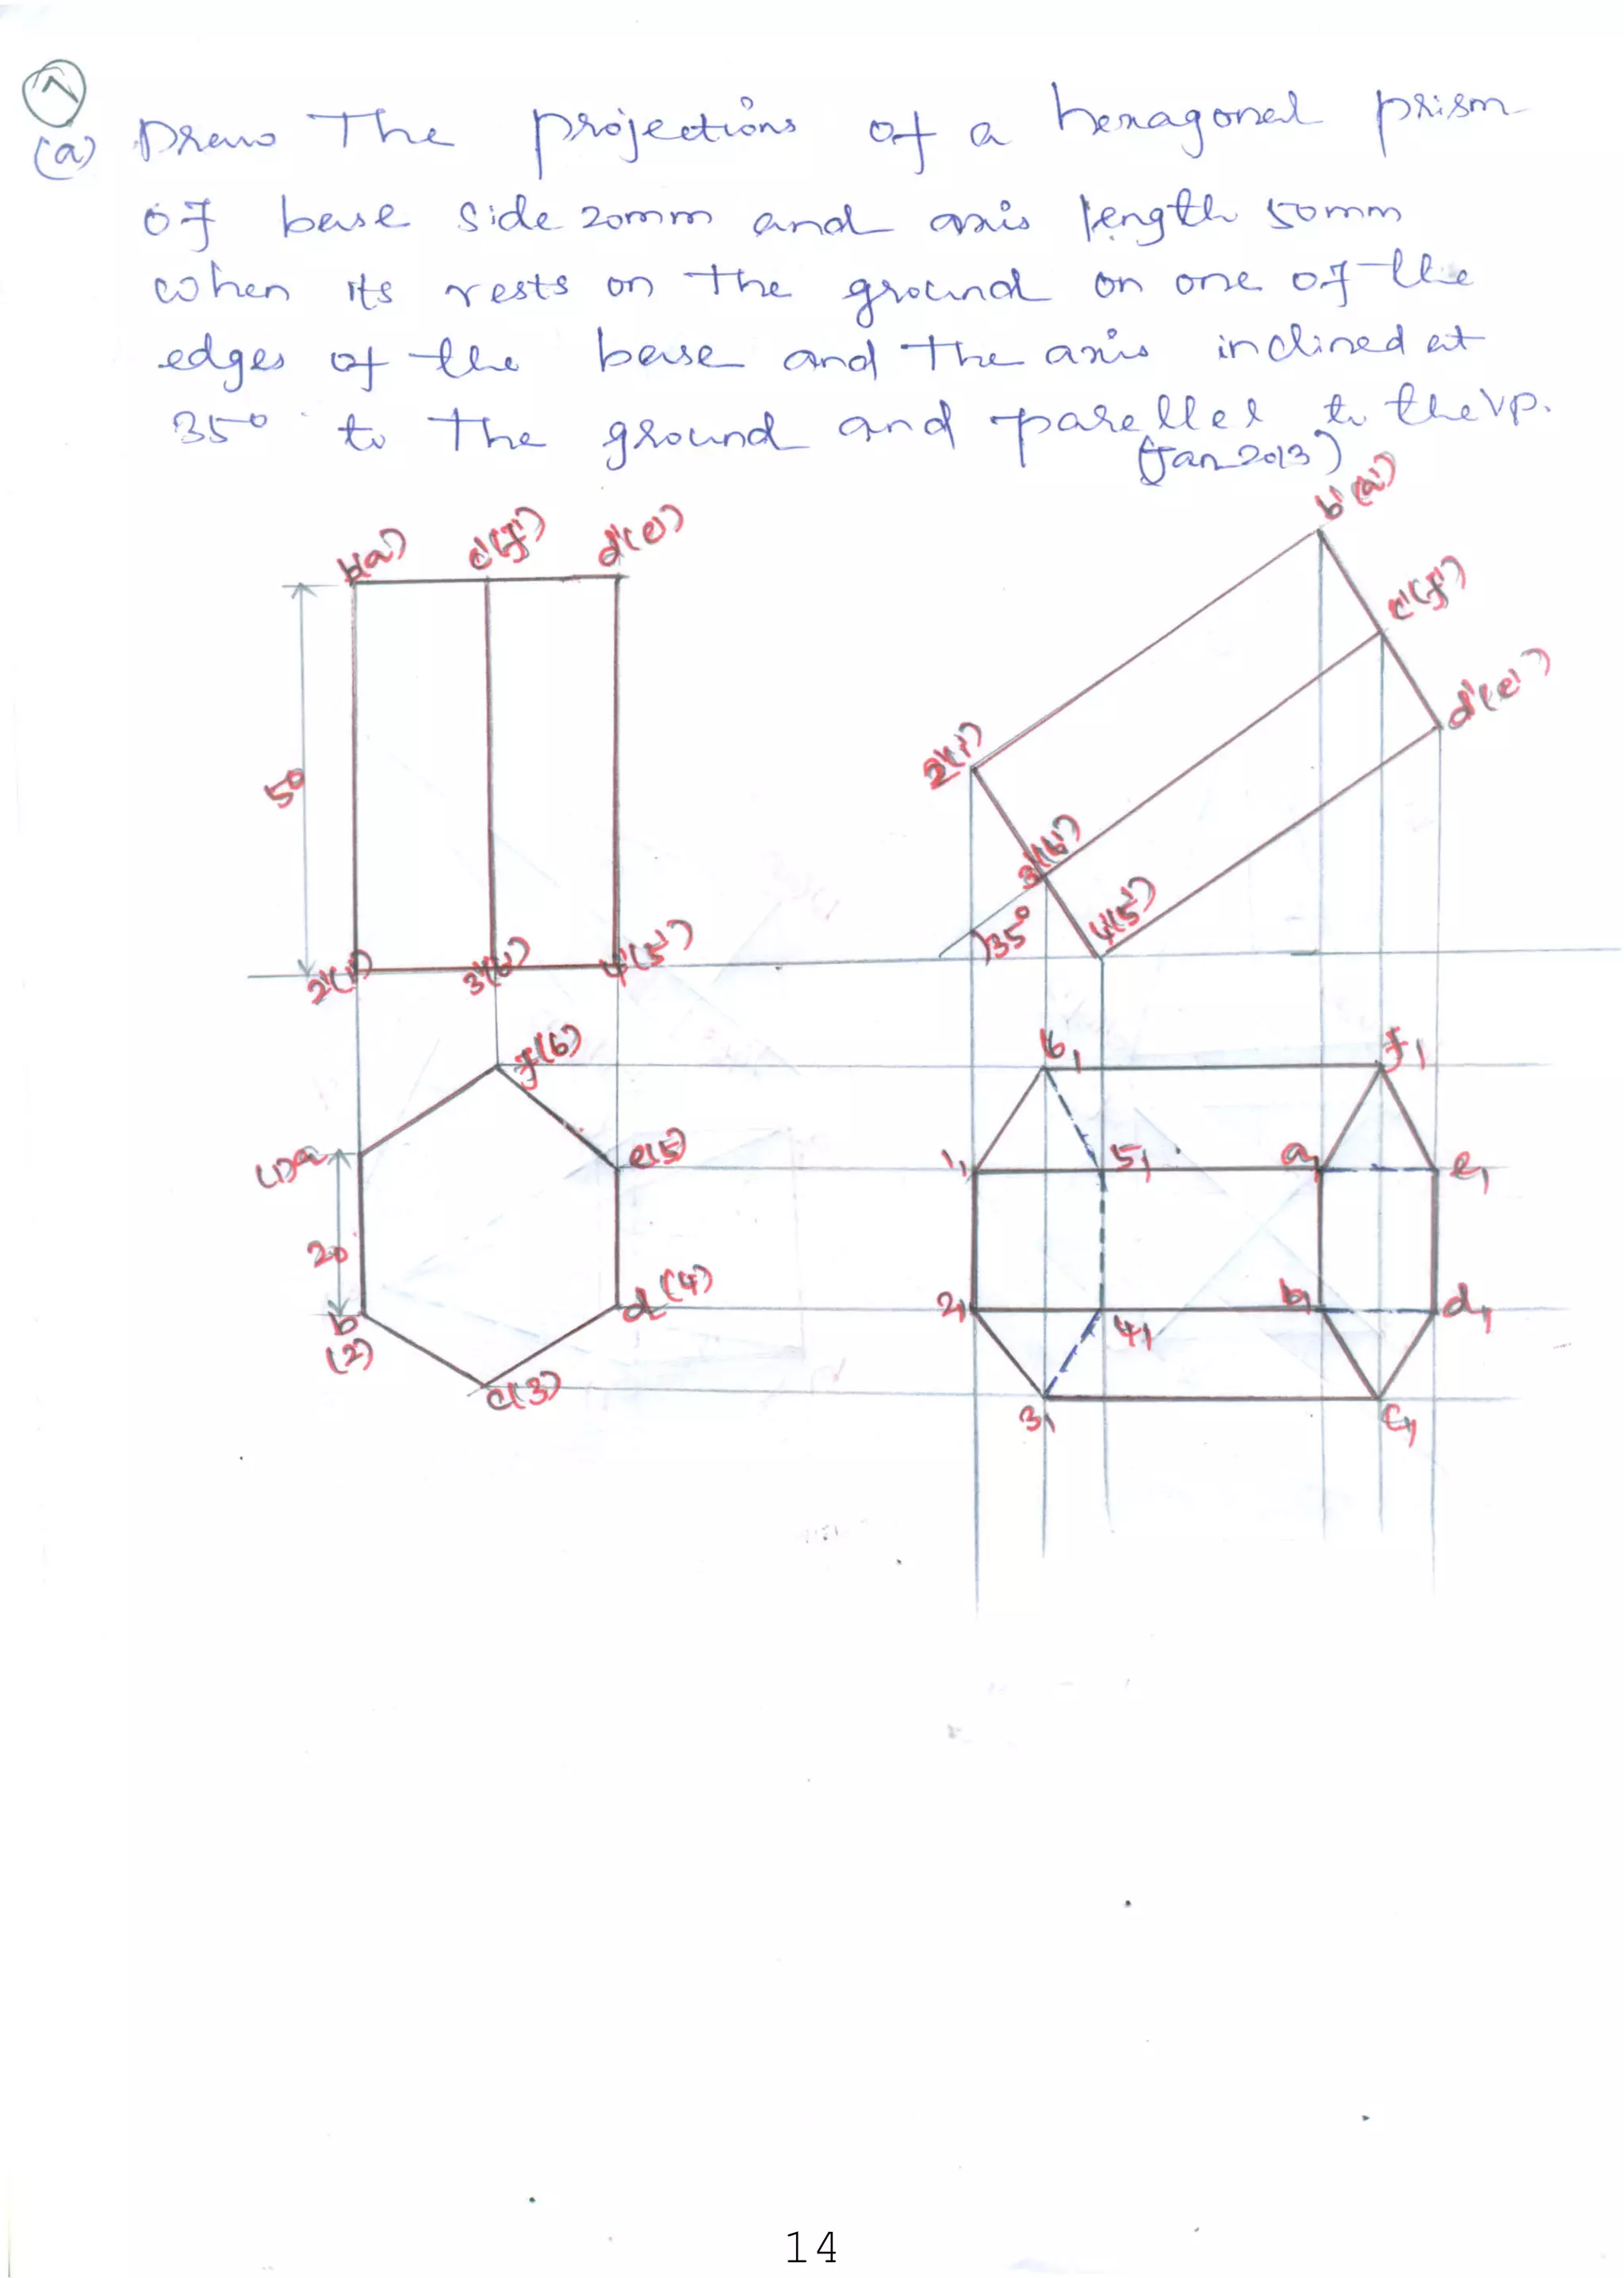 7
(a) Draw The projections of a hexagonal prism
of base side 20mm and axis length 50mm
when its rests on the ground on one of the
edges of the base and the axis inclined at
35° to the ground and parellel to the VP.
(Jan 2013)
b'(a')
b'(a') c'(f') d'(e')
c'(f')
d'(e')
2'(1')
50
3'(6')
4'(5')
35°
2'(1') 3'(6') 4'(5')
f(6) 6₁ f₁
(1)a e(5) 1₁ 5₁ a₁ e₁
20
d(4) 2₁ 4₁ b₁ d₁
b
(2)
c(3) 3₁ c₁
14